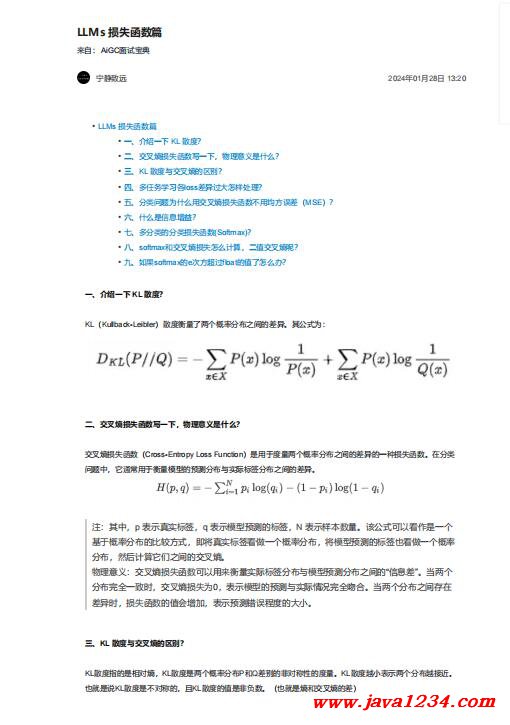 LLMs 损失函数篇
来自： AiGC面试宝典
宁静致远 2024年01月28日 13:20
• LLMs 损失函数篇
• 一、介绍一下 KL 散度？
• 二、交叉熵损失函数写一下，物理意义是什么？
• 三、KL 散度与交叉熵的区别？
• 四、多任务学习各loss差异过大怎样处理？
• 五、分类问题为什么用交叉熵损失函数不用均方误差（MSE）？
• 六、什么是信息增益？
• 七、多分类的分类损失函数(Softmax)？
• 八、softmax和交叉熵损失怎么计算，二值交叉熵呢？
• 九、如果softmax的e次方超过float的值了怎么办？
一、介绍一下 KL 散度？
KL（Kullback-Leibler）散度衡量了两个概率分布之间的差异。其公式为：
D_{KL}(P//Q) = -\sum_{x∈X} P(x) log \frac{1}{P(x)} + \sum_{x∈X} P(x) log \frac{1}{Q(x)}
二、交叉熵损失函数写一下，物理意义是什么？
交叉熵损失函数（Cross-Entropy Loss Function）是用于度量两个概率分布之间的差异的一种损失函数。在分类
问题中，它通常用于衡量模型的预测分布与实际标签分布之间的差异。
H(p, q) = -\sum_{i=1}^{N} p_i log(q_i) - (1 - p_i) log(1 - q_i)
注：其中，p 表示真实标签，q 表示模型预测的标签，N 表示样本数量。该公式可以看作是一个
基于概率分布的比较方式，即将真实标签看做一个概率分布，将模型预测的标签也看做一个概率
分布，然后计算它们之间的交叉熵。
物理意义：交叉熵损失函数可以用来衡量实际标签分布与模型预测分布之间的“信息差”。当两个
分布完全一致时，交叉熵损失为0，表示模型的预测与实际情况完全吻合。当两个分布之间存在
差异时，损失函数的值会增加，表示预测错误程度的大小。
三、KL 散度与交叉熵的区别？
KL散度指的是相对熵，KL散度是两个概率分布P和Q差别的非对称性的度量。KL散度越小表示两个分布越接近。
也就是说KL散度是不对称的，且KL散度的值是非负数。（也就是熵和交叉熵的差）
www.java1234.com